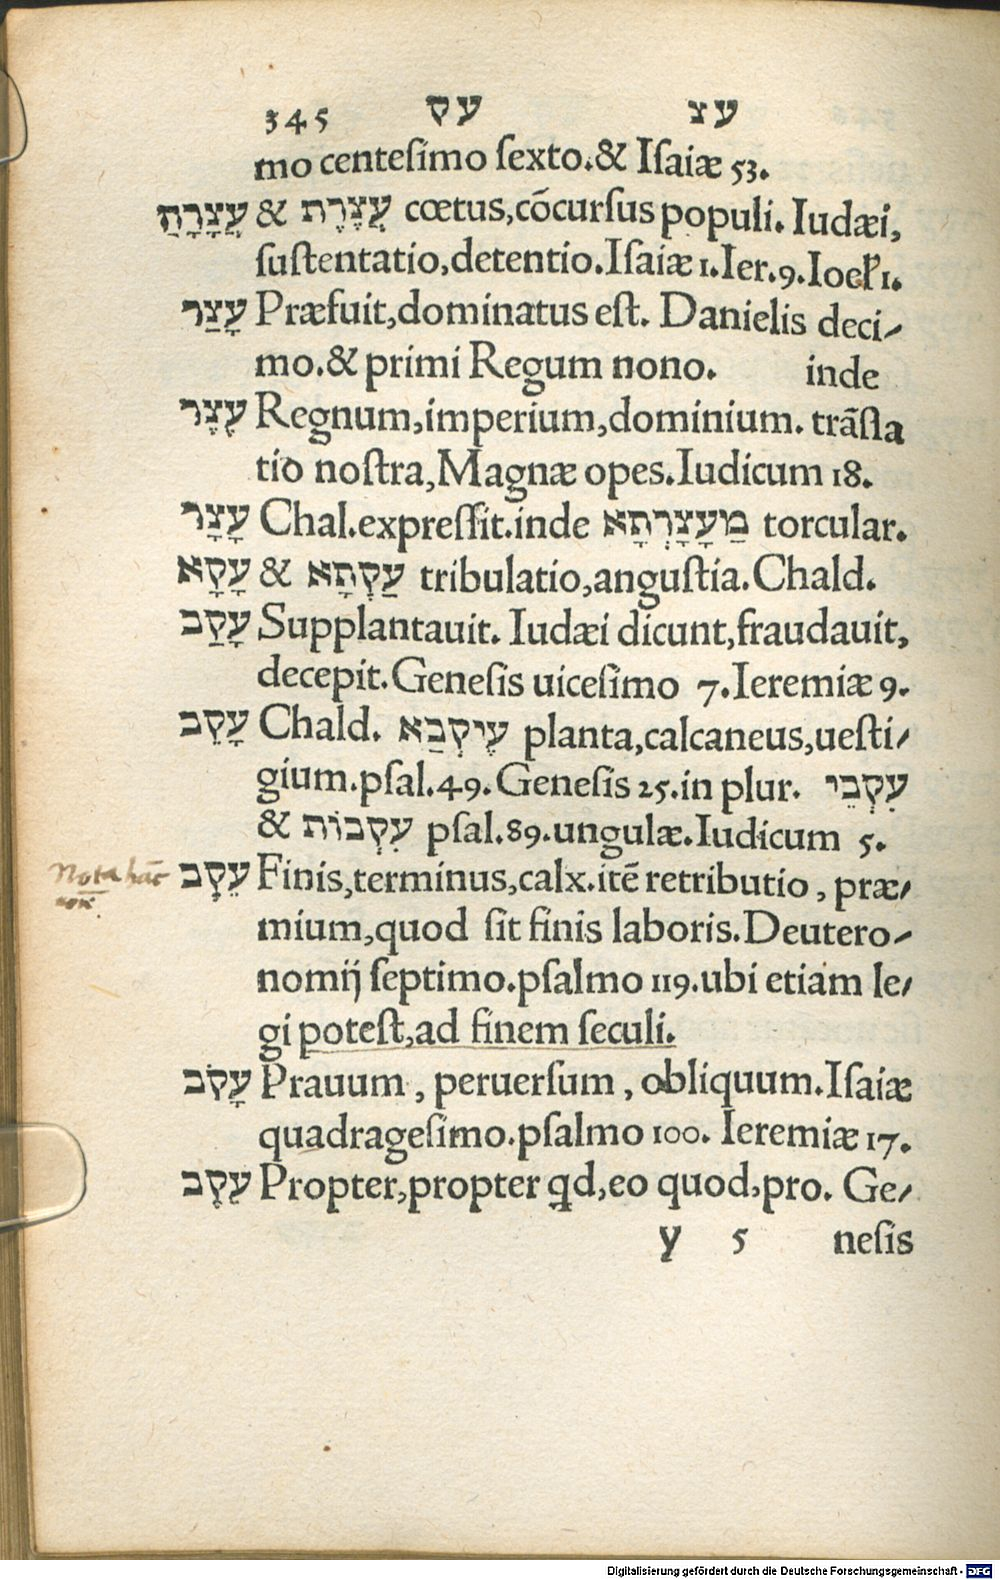 345 עק עצ
mo centesimo sexto.& Isaiæ 53.
עֲצָרָה & עֲצֶרֶת cœtus,cōcursus populi. Iudæi,
sustentatio,detentio.Isaiæ 1.Ier.9.Ioel 1.
עָצַר Præfuit,dominatus est. Danielis deci-
mo.& primi Regum nono. inde
עֶצֶר Regnum,imperium,dominium. trāsla
tio nostra,Magnæ opes.Iudicum 18.
עָצָר Chal.expressit.inde מַעָצָרְתָא torcular.
עָקָא & עַקְתָא tribulatio,angustia.Chald.
עָקַב Supplantauit. Iudæi dicunt,fraudauit,
decepit.Genesis uicesimo 7.Ieremiæ 9.
עָקֵב Chald. עֶיקְבַא planta,calcaneus,uesti-
gium.psal.49.Genesis 25.in plur. עִקְבֵי
& עִקְבוֹת psal.89.ungulæ.Iudicum 5.
Nota hāc
עֵקֶב Finis,terminus,calx.itē retributio, præ-
mium,quod sit finis laboris.Deutero-
nomij septimo.psalmo 119.ubi etiam le-
gi potest,ad finem seculi.
עָקֹב Prauum, peruersum, obliquum.Isaiæ
quadragesimo.psalmo 100. Ieremiæ 17.
עֵקֶב Propter,propter qd,eo quod,pro. Ge-
y 5 nesis
Digitalisierung gefördert durch die Deutsche Forschungsgemeinschaft - DFG